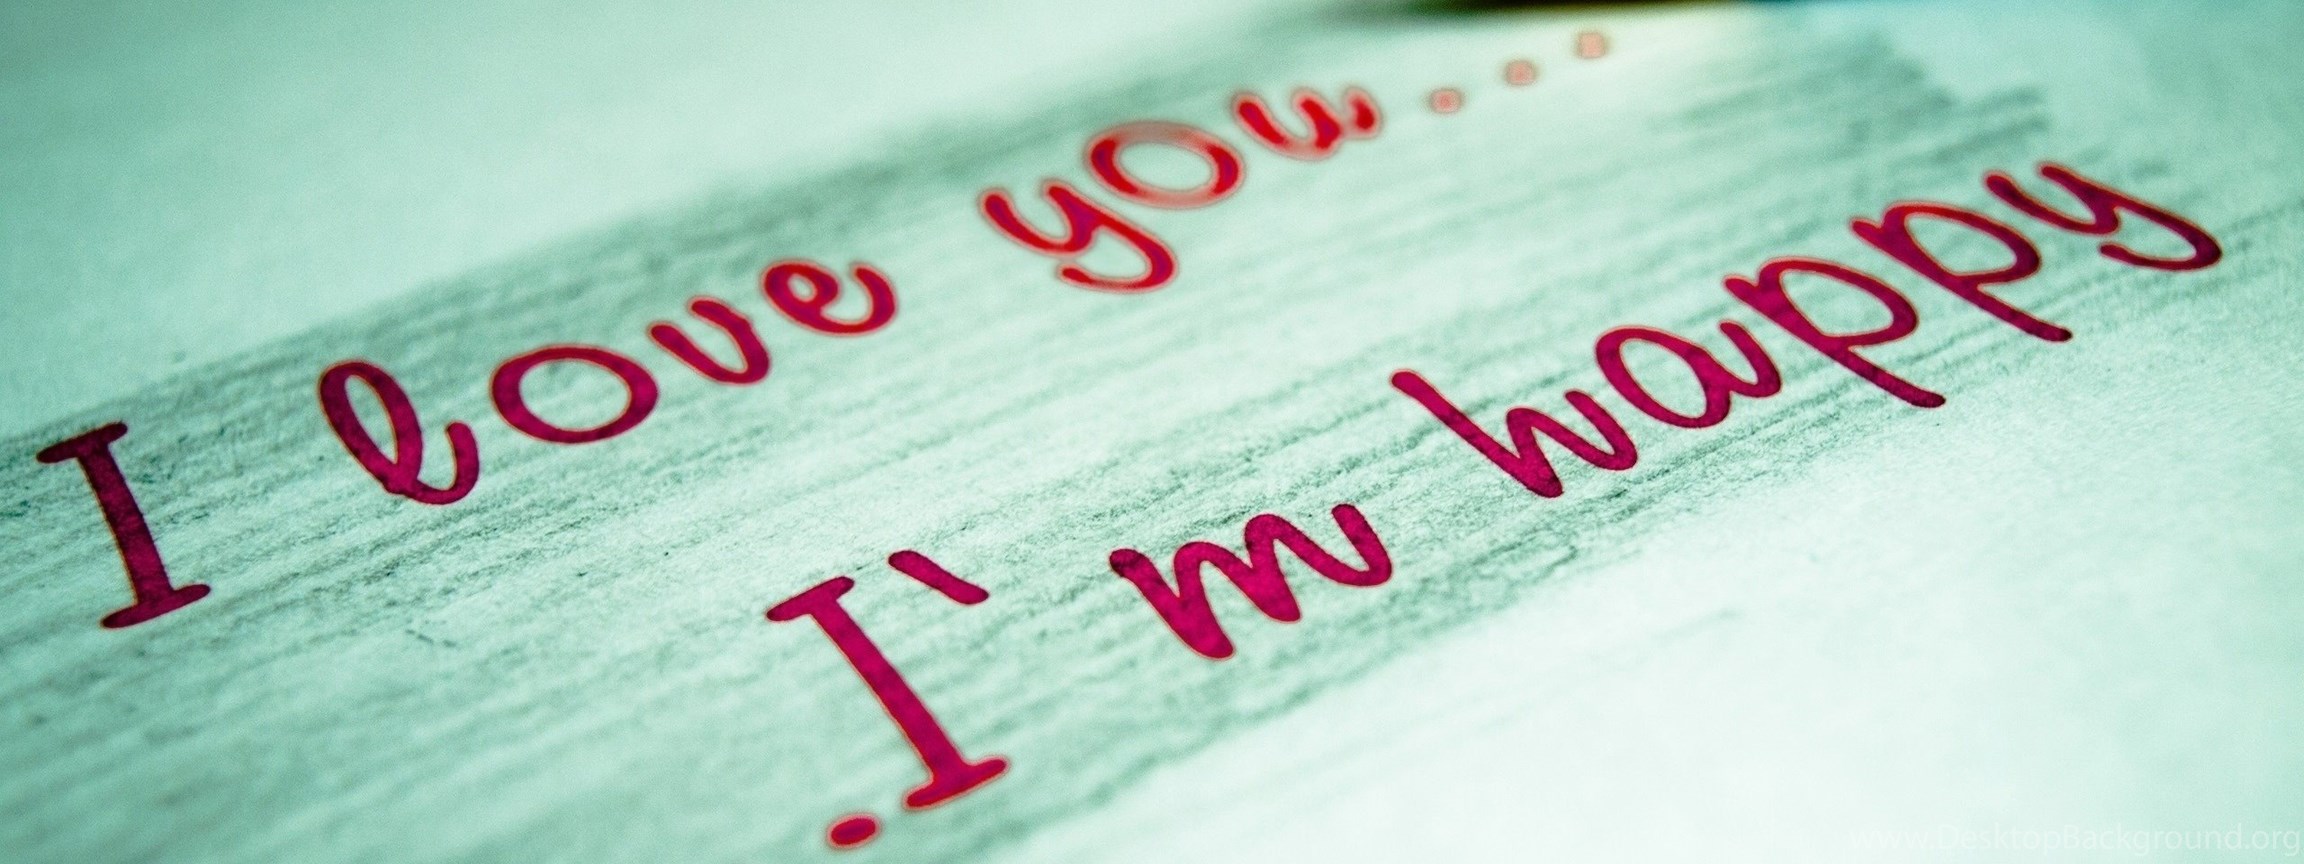 I love you...
.I`m happy
www.DesktopBackground.org